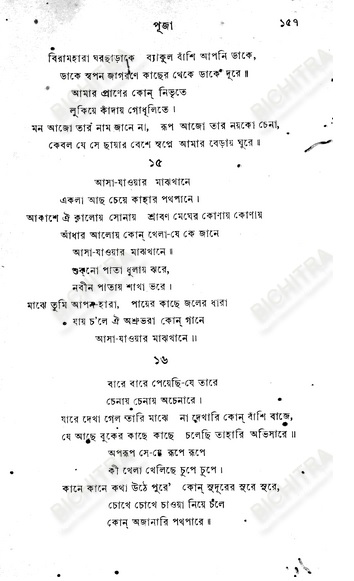 পূজা ১৫৭
বিরামহারা ঘরছাড়াকে ব্যাকুল বাঁশি আপনি ডাকে,
ডাকে স্বপন জাগরণে কাছের থেকে ডাকে দূরে॥
আমার প্রাণের কোন্ নিভৃতে
লুকিয়ে কাঁদায় গোধূলিতে।
মন আজো তার নাম জানে না, রূপ আজো তার নয়কো চেনা,
কেবল যে সে ছায়ার বেশে স্বপ্নে আমার বেড়ায় ঘুরে॥
১৫
আসা-যাওয়ার মাঝখানে
একলা আছ চেয়ে কাহার পথপানে।
আকাশে ঐ কালোয় সোনায় শ্রাবণ মেঘের কোণায় কোণায়
আঁধার আলোয় কোন্ খেলা-যে কে জানে
আসা-যাওয়ার মাঝখানে॥
শুকনো পাতা ধুলায় ঝরে,
নবীন পাতায় শাখা ভরে।
মাঝে তুমি আপন-হারা, পায়ের কাছে জলের ধারা
যায় চ'লে ঐ অশ্রুভরা কোন্ গানে
আসা-যাওয়ার মাঝখানে॥
১৬
বারে বারে পেয়েছি-যে তারে
চেনায় চেনায় অচেনারে।
যারে দেখা গেল তারি মাঝে না দেখারি কোন্ বাঁশি বাজে,
যে আছে বুকের কাছে কাছে চলেছি তাহারি অভিসারে॥
অপরূপ সে-যে রূপে রূপে
কী খেলা খেলিছে চুপে চুপে।
কানে কানে কথা উঠে পূরে' কোন্ সুদূরের সুরে সুরে,
চোখে চোখে চাওয়া নিয়ে চলে
কোন্ অজানারি পথপারে॥
BICHITRA